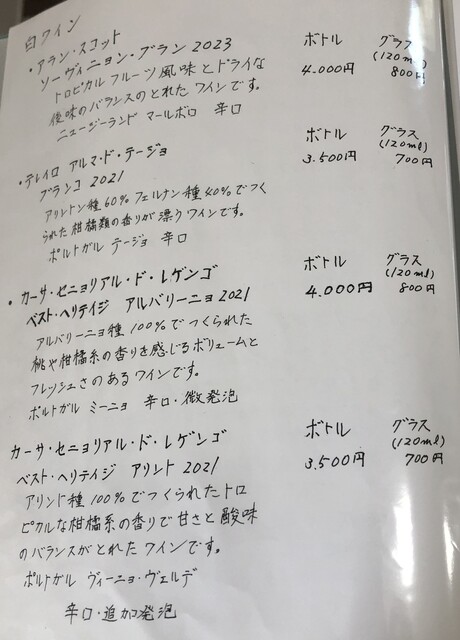 白ワイン
・アラン・スコット
ソーヴィニョン・ブラン 2023
トロピカルフルーツ風味とドライな
後味のバランスのとれたワインです。
ニュージーランド マールボロ 辛口
ボトル グラス
(120ml)
4.000円 800円
・テレイロ アルマ・ド・テージョ
ブランコ 2021
アリントン種60%フェルナン種40%でつく
られた柑橘類の香りが漂うワインです。
ポルトガル テージョ 辛口
ボトル グラス
(120ml)
3.500円 700円
・カーサ・セニョリアル・ド・レゲンゴ
ベスト・ヘリテイジ アルバリーニョ2021
アルバリーニョ種100%でつくられた
桃や柑橘系の香りを感じるボリュームと
フレッシュさのあるワインです。
ポルトガル ミーニョ 辛口・微発泡
ボトル グラス
(120ml)
4.000円 800円
カーサ・セニョリアル・ド・レゲンゴ
ベスト・ヘリテイジ アリント 2021
アリンド種100%でつくられたトロ
ピカルな柑橘系の香りで甘さと酸味
のバランスがとれたワインです。
ポルトガル ヴィーニョ・ヴェルデ
辛口・追加発泡
ボトル グラス
(120ml)
3.500円 700円